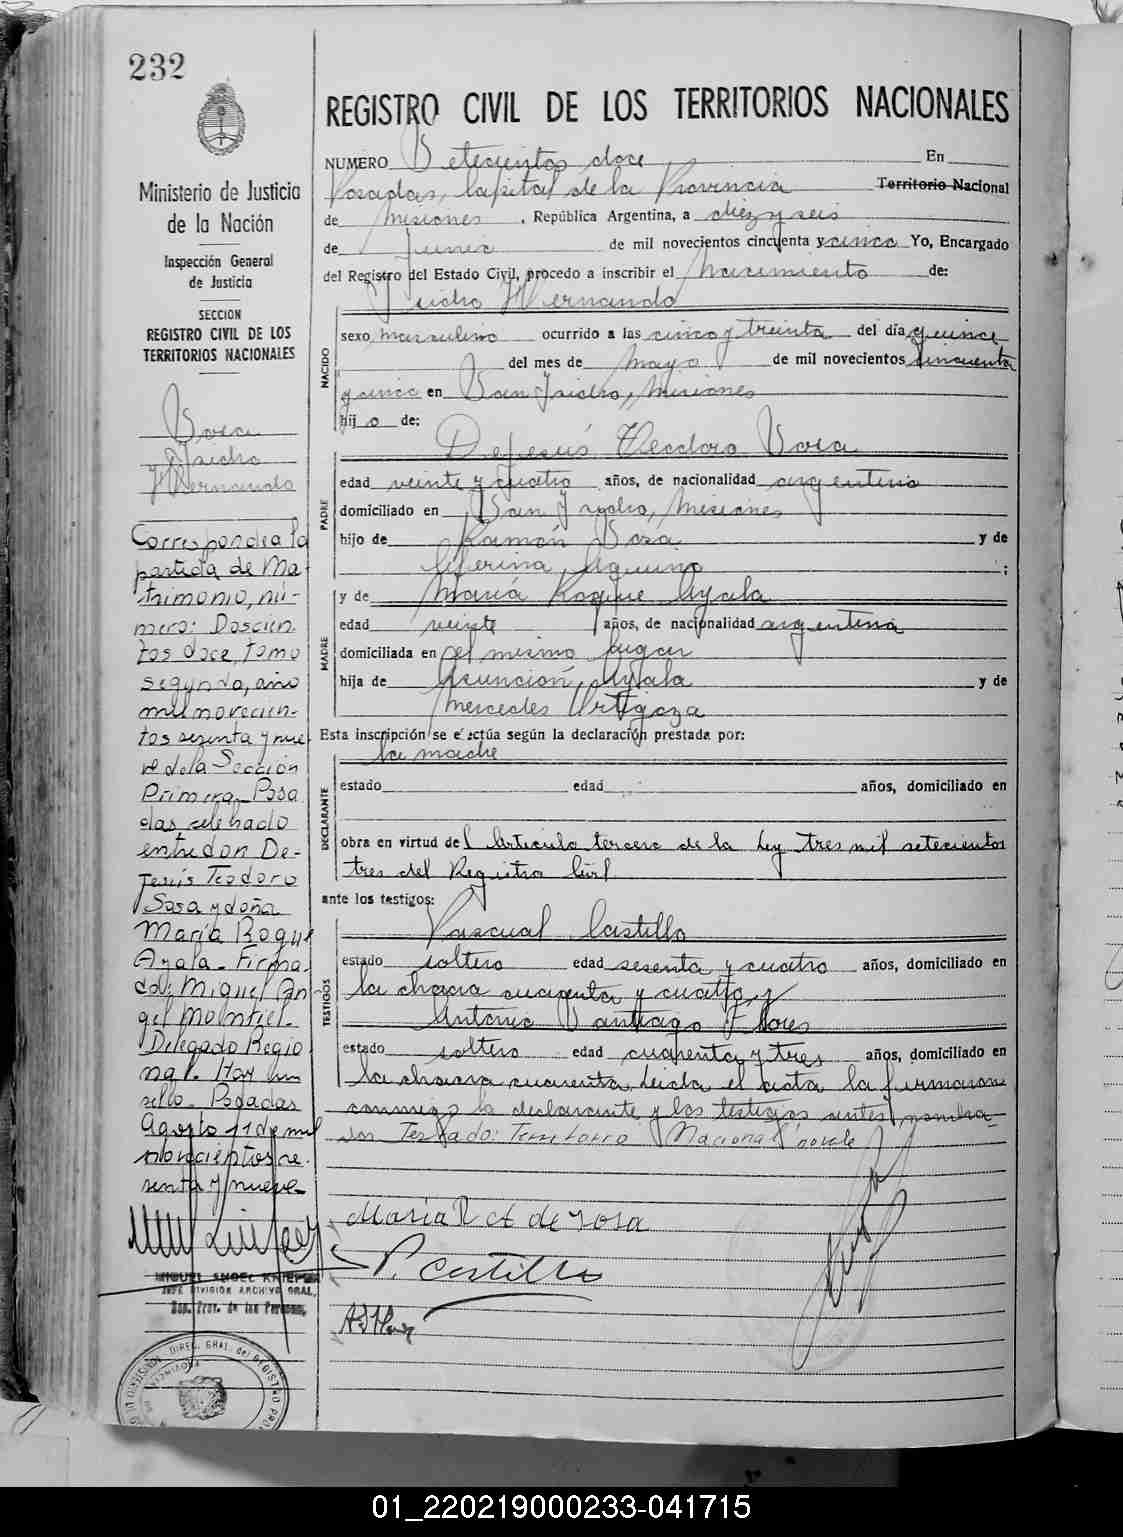 232
Ministerio de Justicia
de la Nación
Inspección General
de Justicia
SECCION
REGISTRO CIVIL DE LOS
TERRITORIOS NACIONALES
Sosa
Isidro
Hernando
Corresponde a la
partida de Ma-
trimonio, nú-
mero: Doscien
tos doce, tomo
segundo, año
mil novecien-
tos sesenta y nue
ve de la Sección
Primera Posa
das, celebrado
entre don De-
Jesús Teodoro
Sosa y doña
María Roque
Ayala. Firma
do: Miguel An
gel Montiel.
Delegado Regio
nal. Hay un
sello. Posadas
Agosto 11 de mil
novecientos se-
senta y nueve
MIGUEL ANGEL
JEFE DIVISION ARCHIVO GRAL.
Reg. Prov. de las Personas
REGISTRO CIVIL DE LOS TERRITORIOS NACIONALES
NUMERO Setecientos doce En
Posadas, Capital de la Provincia Territorio Nacional
de Misiones, República Argentina, a diez y seis
de Junio de mil novecientos cincuenta y cinco Yo, Encargado
del Registro del Estado Civil, procedo a inscribir el Nacimiento de:
Isidro Hernando
NACIDO
sexo masculino ocurrido a las cinco y treinta del día quince
del mes de Mayo de mil novecientos cincuenta
y cinco en San Isidro, Misiones
hijo de:
PADRE
DeJesús Teodoro Sosa
edad veinte y cuatro años, de nacionalidad argentino
domiciliado en San Isidro, Misiones
hijo de Ramón Sosa y de
Aquino;
MADRE
y de María Roque Ayala
edad veinte años, de nacionalidad argentina
domiciliada en el mismo lugar
hija de Asunción Ayala y de
Mercedes Ortigoza
Esta inscripción se efectúa según la declaración prestada por:
la madre
DECLARANTE
estado edad años, domiciliado en
obra en virtud del Artículo tercero de la Ley tres mil setecientos
tres del Registro Civil
ante los testigos:
TESTIGOS
Pascual Castillo
estado soltero edad sesenta y cuatro años, domiciliado en
la chacra cuarenta y cuatro, y
Antonio Santiago Flores
estado soltero edad cuarenta y tres años, domiciliado en
la chacra cuarenta. Leída el acta la firmaron
conmigo la declarante y los testigos antes nombra
dos Testado: Territorio Nacional no vale
María R A de sosa
P. Castillo
01_220219000233-041715